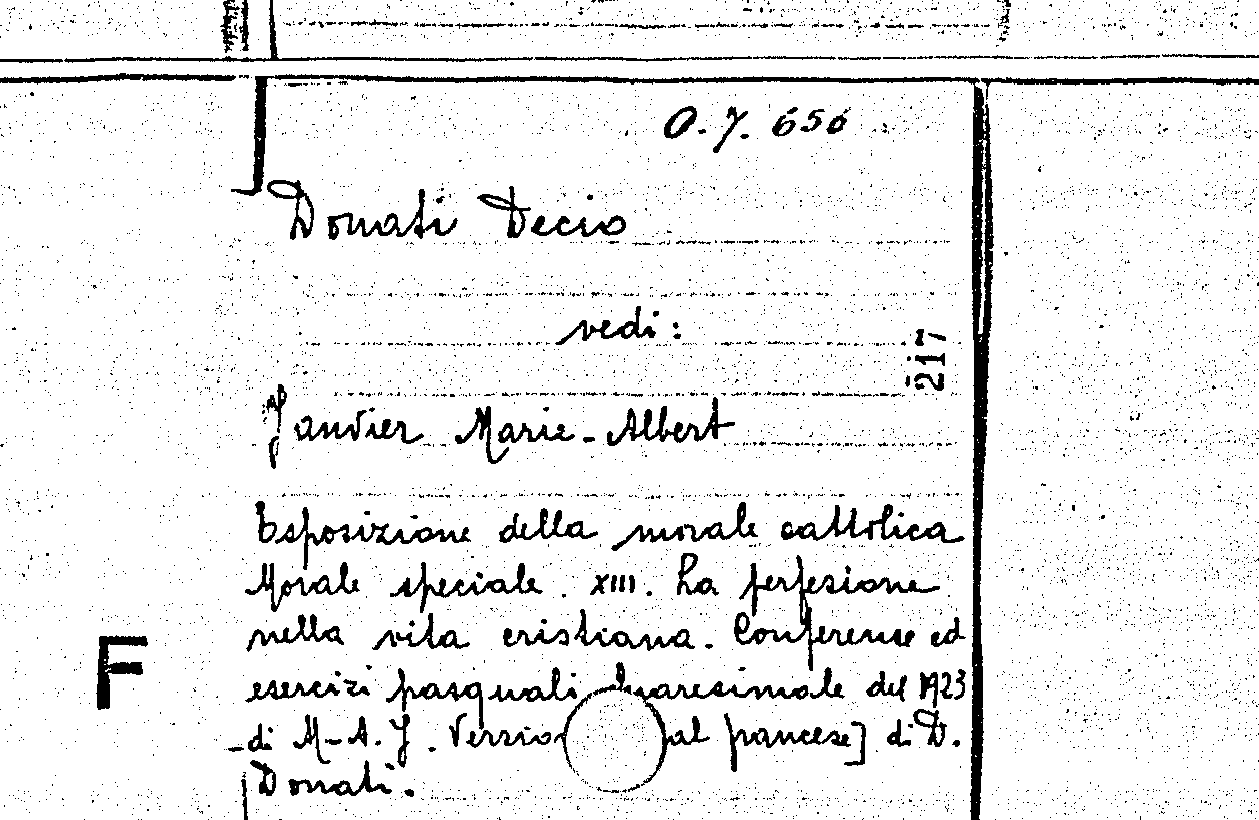 O. 7. 656
Donati Decio
vedi:
217
Janvier Marie-Albert
Esposizione della morale cattolica
Morale speciale. XIII. La perfezione
nella vita cristiana. Conferenze ed
esercizi pasquali quaresimale del 1923
F
di M-A. J. Version al francese] di D.
Donati.